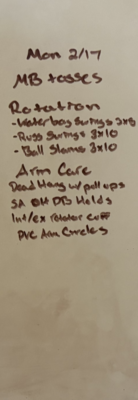 Mon 2/17
MB tosses
Rotation
-Waterbag Swings 3x8
-Russ Swings 3x10
-Ball Slams 3x10
Arm Care
Dead Hang w/ pull ups
SA OH DB Holds
Int/ex rotator cuff
PVC Arm Circles